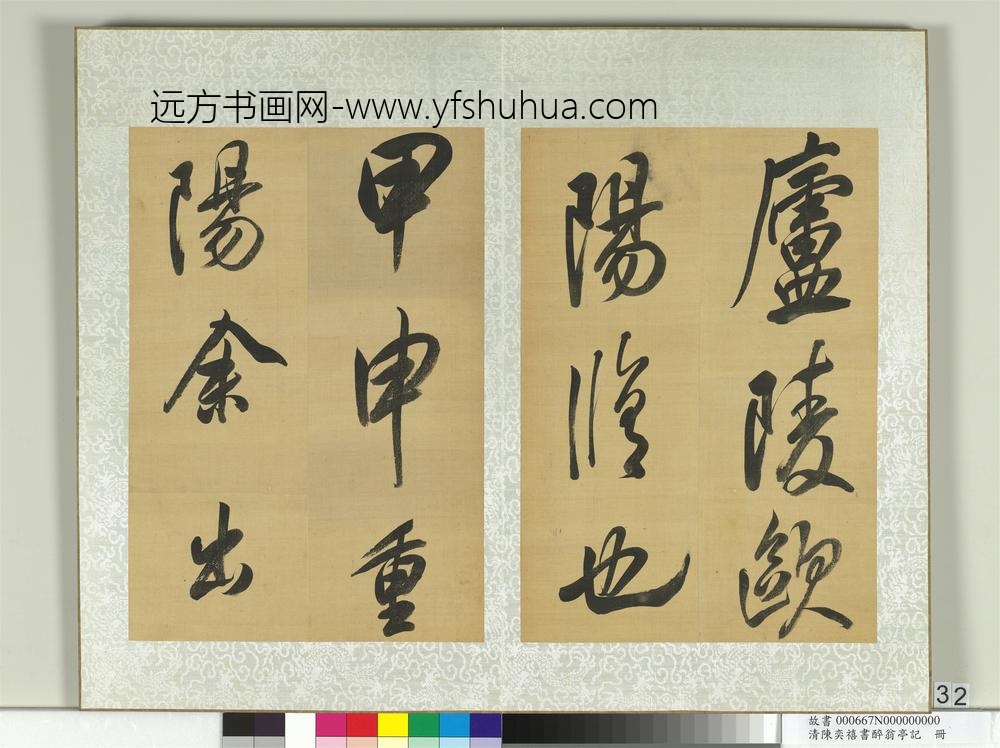 远方书画网-www.yfshuhua.com
廬陵歐
陽脩也
甲申重
陽余出
32
故書 000667N000000000
清陳奕禧書醉翁亭記 冊